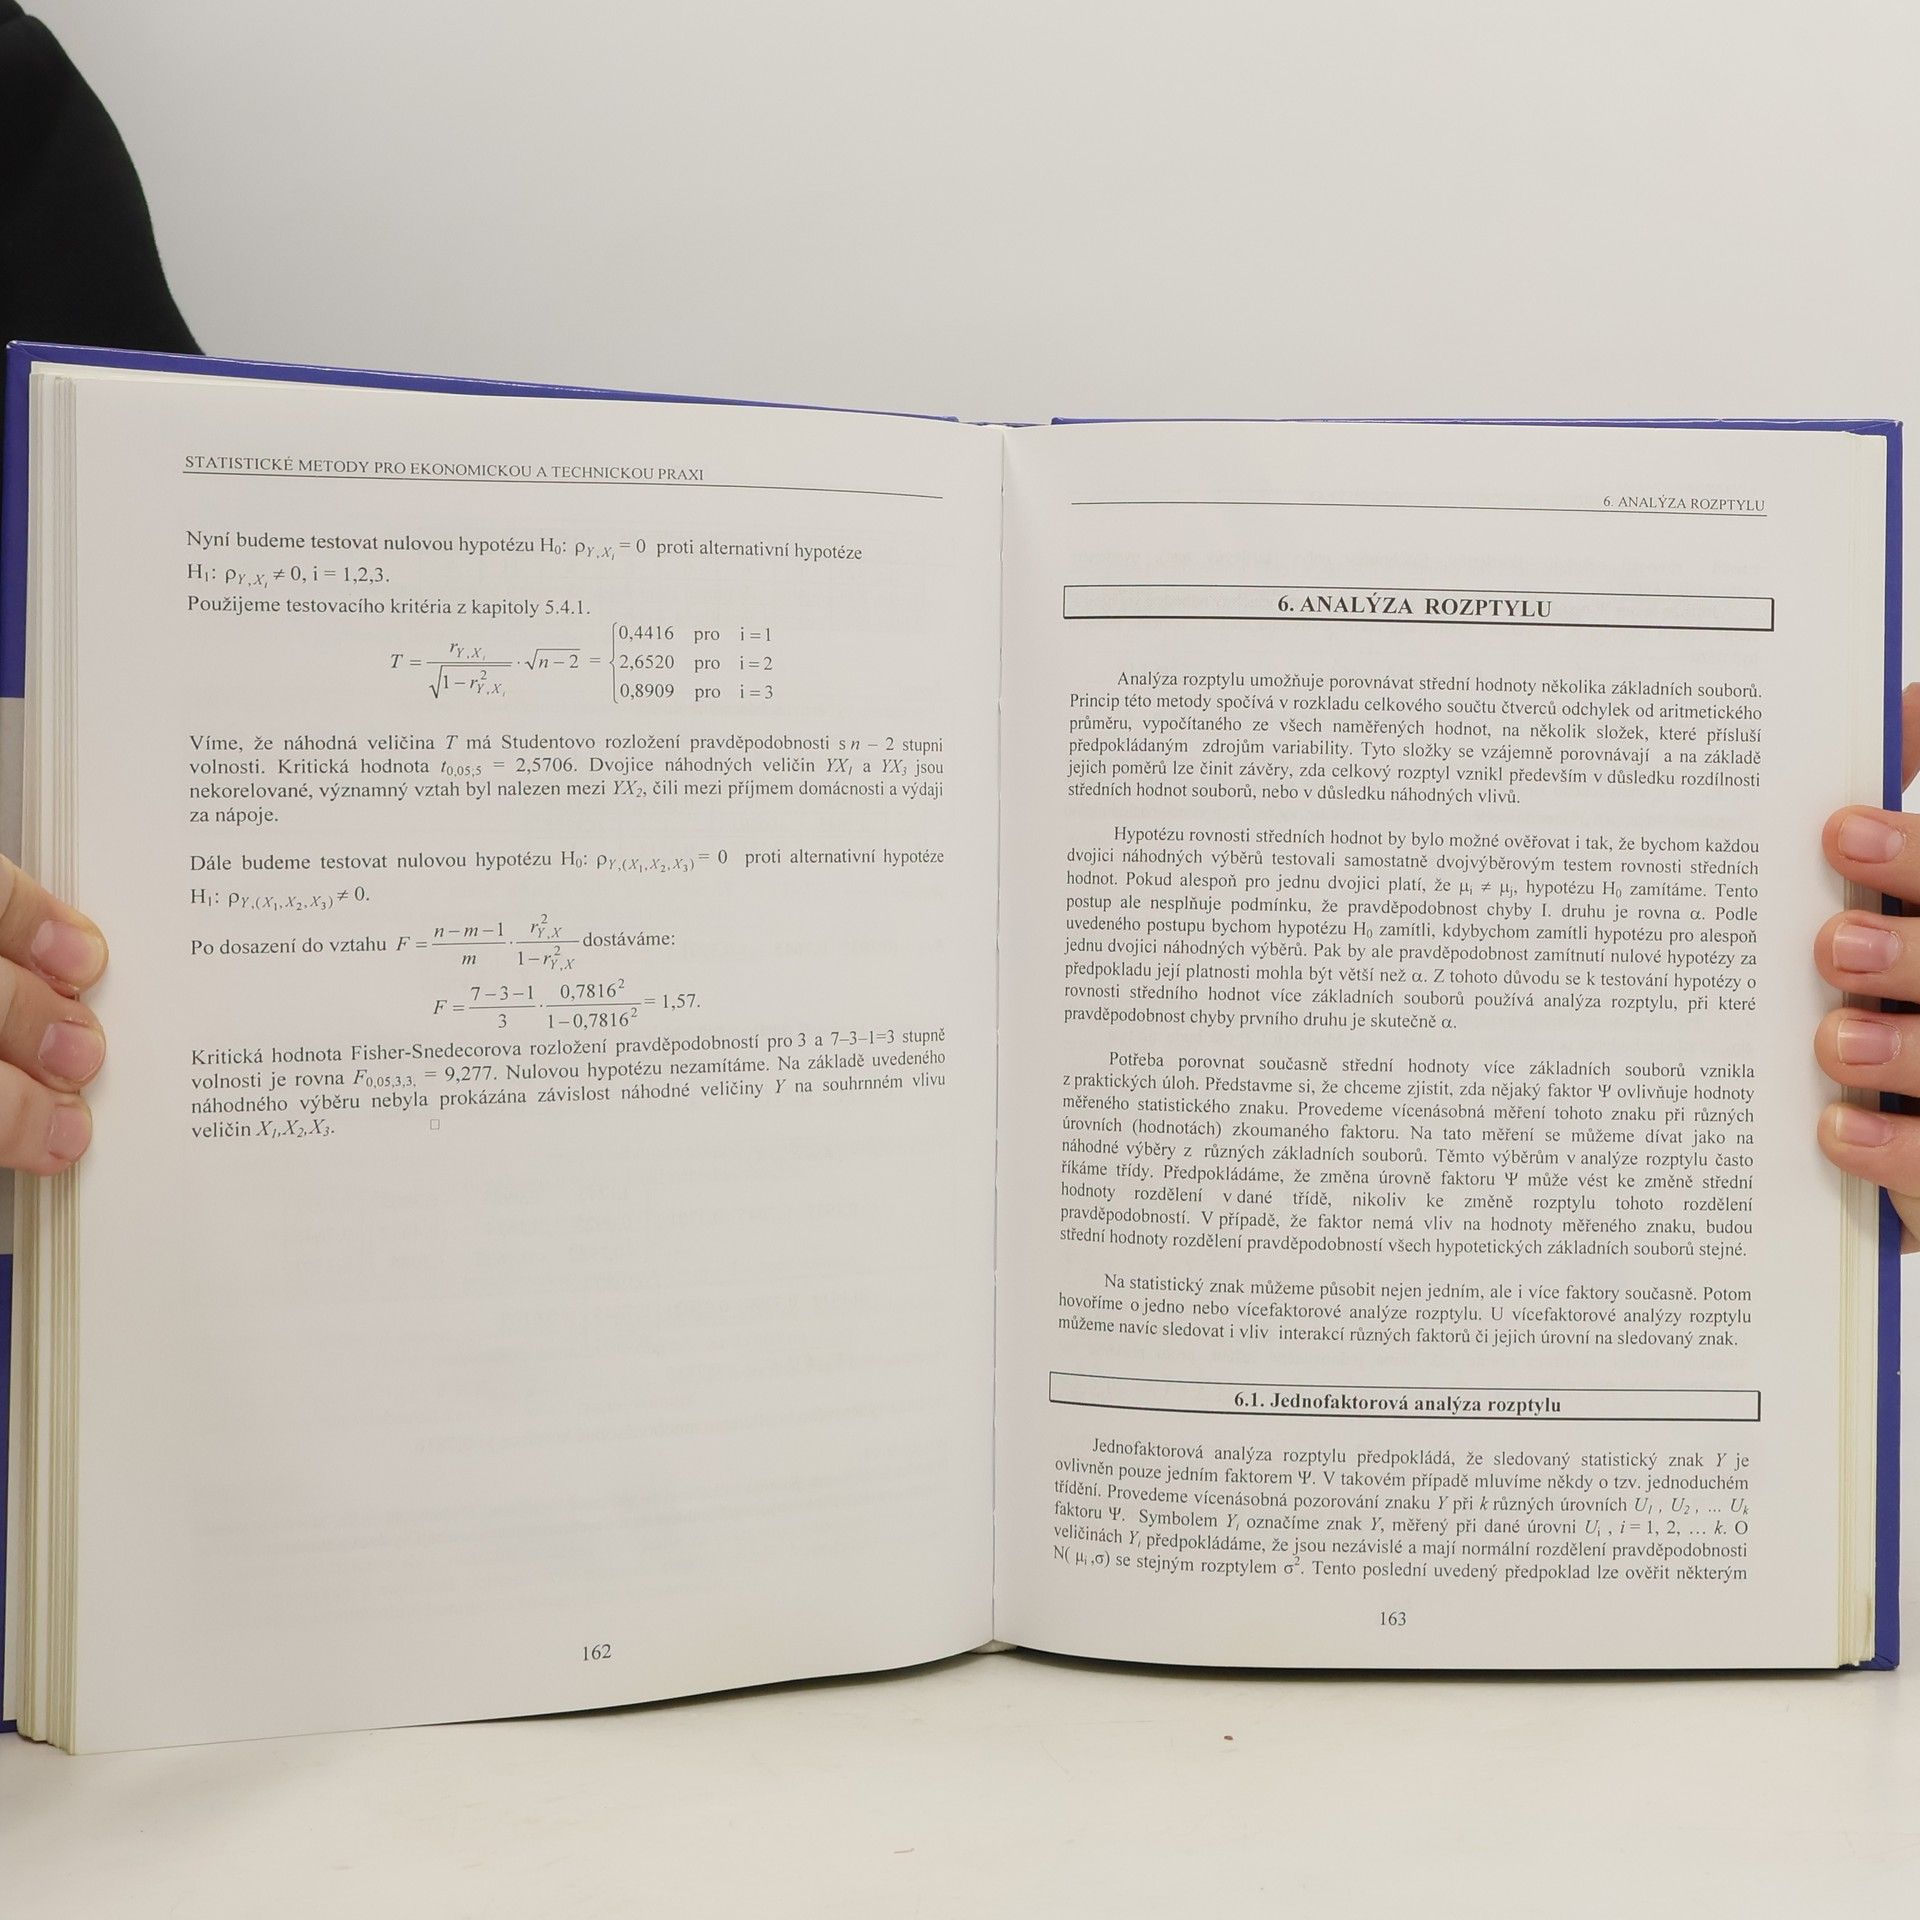 STATISTICKÉ METODY PRO EKONOMICKOU A TECHNICKOU PRAXI
Nyní budeme testovat nulovou hypotézu H₀: ρ_{Y,X_i} = 0 proti alternativní hypotéze
H₁: ρ_{Y,X_i} ≠ 0, i = 1,2,3.
Použijeme testovacího kritéria z kapitoly 5.4.1.
T = \frac{r_{Y,X_i}}{\sqrt{1-r^2_{Y,X_i}}} · \sqrt{n-2} = { 0,4416 pro i=1
2,6520 pro i=2
0,8909 pro i=3
Víme, že náhodná veličina T má Studentovo rozložení pravděpodobnosti s n – 2 stupni
volnosti. Kritická hodnota t_{0,05,5} = 2,5706. Dvojice náhodných veličin YX₁ a YX₃ jsou
nekorelované, významný vztah byl nalezen mezi YX₂, čili mezi příjmem domácnosti a výdaji
za nápoje.
Dále budeme testovat nulovou hypotézu H₀: ρ_{Y,(X₁,X₂,X₃)} = 0 proti alternativní hypotéze
H₁: ρ_{Y,(X₁,X₂,X₃)} ≠ 0.
Po dosazení do vztahu F = \frac{n-m-1}{m} · \frac{r^2_{Y,X}}{1-r^2_{Y,X}} dostáváme:
F = \frac{7-3-1}{3} · \frac{0,7816²}{1-0,7816²} = 1,57.
Kritická hodnota Fisher-Snedecorova rozložení pravděpodobností pro 3 a 7–3–1=3 stupně
volnosti je rovna F_{0,05,3,3,} = 9,277. Nulovou hypotézu nezamítáme. Na základě uvedeného
náhodného výběru nebyla prokázána závislost náhodné veličiny Y na souhrnném vlivu
veličin X₁,X₂,X₃. □
162
6. ANALÝZA ROZPTYLU
6. ANALÝZA ROZPTYLU
Analýza rozptylu umožňuje porovnávat střední hodnoty několika základních souborů.
Princip této metody spočívá v rozkladu celkového součtu čtverců odchylek od aritmetického
průměru, vypočítaného ze všech naměřených hodnot, na několik složek, které přísluší
předpokládaným zdrojům variability. Tyto složky se vzájemně porovnávají a na základě
jejich poměrů lze činit závěry, zda celkový rozptyl vznikl především v důsledku rozdílnosti
středních hodnot souborů, nebo v důsledku náhodných vlivů.
Hypotézu rovnosti středních hodnot by bylo možné ověřovat i tak, že bychom každou
dvojici náhodných výběrů testovali samostatně dvojvýběrovým testem rovnosti středních
hodnot. Pokud alespoň pro jednu dvojici platí, že μᵢ ≠ μⱼ, hypotézu H₀ zamítáme. Tento
postup ale nesplňuje podmínku, že pravděpodobnost chyby I. druhu je rovna α. Podle
uvedeného postupu bychom hypotézu H₀ zamítli, kdybychom zamítli hypotézu pro alespoň
jednu dvojici náhodných výběrů. Pak by ale pravděpodobnost zamítnutí nulové hypotézy za
předpokladu její platnosti mohla být větší než α. Z tohoto důvodu se k testování hypotézy o
rovnosti středního hodnot více základních souborů používá analýza rozptylu, při které
pravděpodobnost chyby prvního druhu je skutečně α.
Potřeba porovnat současně střední hodnoty více základních souborů vznikla
z praktických úloh. Představme si, že chceme zjistit, zda nějaký faktor Ψ ovlivňuje hodnoty
měřeného statistického znaku. Provedeme vícenásobná měření tohoto znaku při různých
úrovních (hodnotách) zkoumaného faktoru. Na tato měření se můžeme dívat jako na
náhodné výběry z různých základních souborů. Těmto výběrům v analýze rozptylu často
říkáme třídy. Předpokládáme, že změna úrovně faktoru Ψ může vést ke změně střední
hodnoty rozdělení v dané třídě, nikoliv ke změně rozptylu tohoto rozdělení
pravděpodobností. V případě, že faktor nemá vliv na hodnoty měřeného znaku, budou
střední hodnoty rozdělení pravděpodobností všech hypotetických základních souborů stejné.
Na statistický znak můžeme působit nejen jedním, ale i více faktory současně. Potom
hovoříme o jedno nebo vícefaktorové analýze rozptylu. U vícefaktorové analýzy rozptylu
můžeme navíc sledovat i vliv interakcí různých faktorů či jejich úrovní na sledovaný znak.
6.1. Jednofaktorová analýza rozptylu
Jednofaktorová analýza rozptylu předpokládá, že sledovaný statistický znak Y je
ovlivněn pouze jedním faktorem Ψ. V takovém případě mluvíme někdy o tzv. jednoduchém
třídění. Provedeme vícenásobná pozorování znaku Y při k různých úrovních U₁ , U₂ , ... Uₖ
faktoru Ψ. Symbolem Yᵢ označíme znak Y, měřený při dané úrovni Uᵢ , i = 1, 2, ... k. O
veličinách Yᵢ předpokládáme, že jsou nezávislé a mají normální rozdělení pravděpodobnosti
N( μᵢ ,σ) se stejným rozptylem σ². Tento poslední uvedený předpoklad lze ověřit některým
163